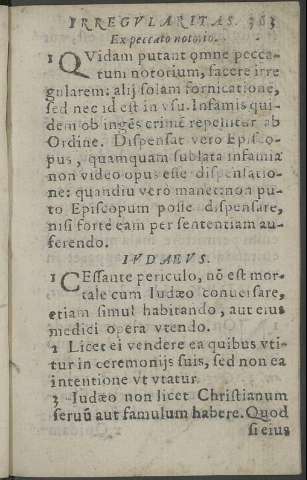 IRREGVLARITAS. 363
Ex peccato notorio.
1 QVidam putant omne pecca-
tum notorium, facere irre
gularem: alij solam fornicatione,
sed nec id est in vsu. Infamis qui-
dem ob ingēs crimē repellitur ab
Ordine. Dispensat vero Episco-
pus, quamquam sublata infamia
non video opus esse dispensatio-
ne: quandiu vero manet: non pu-
to Episcopum posse dispensare,
nisi forte eam per sententiam au-
ferendo.
IVDAEVS.
1 CEssante periculo, nō est mor-
tale cum Iudæo conuersare,
etiam simul habitando, aut eius
medici opera vtendo.
2 Licet ei vendere ea quibus vti-
tur in ceremonijs suis, sed non ea
intentione vt vtatur.
3 Iudæo non licet Christianum
seruū aut famulum habere. Quod
si eius